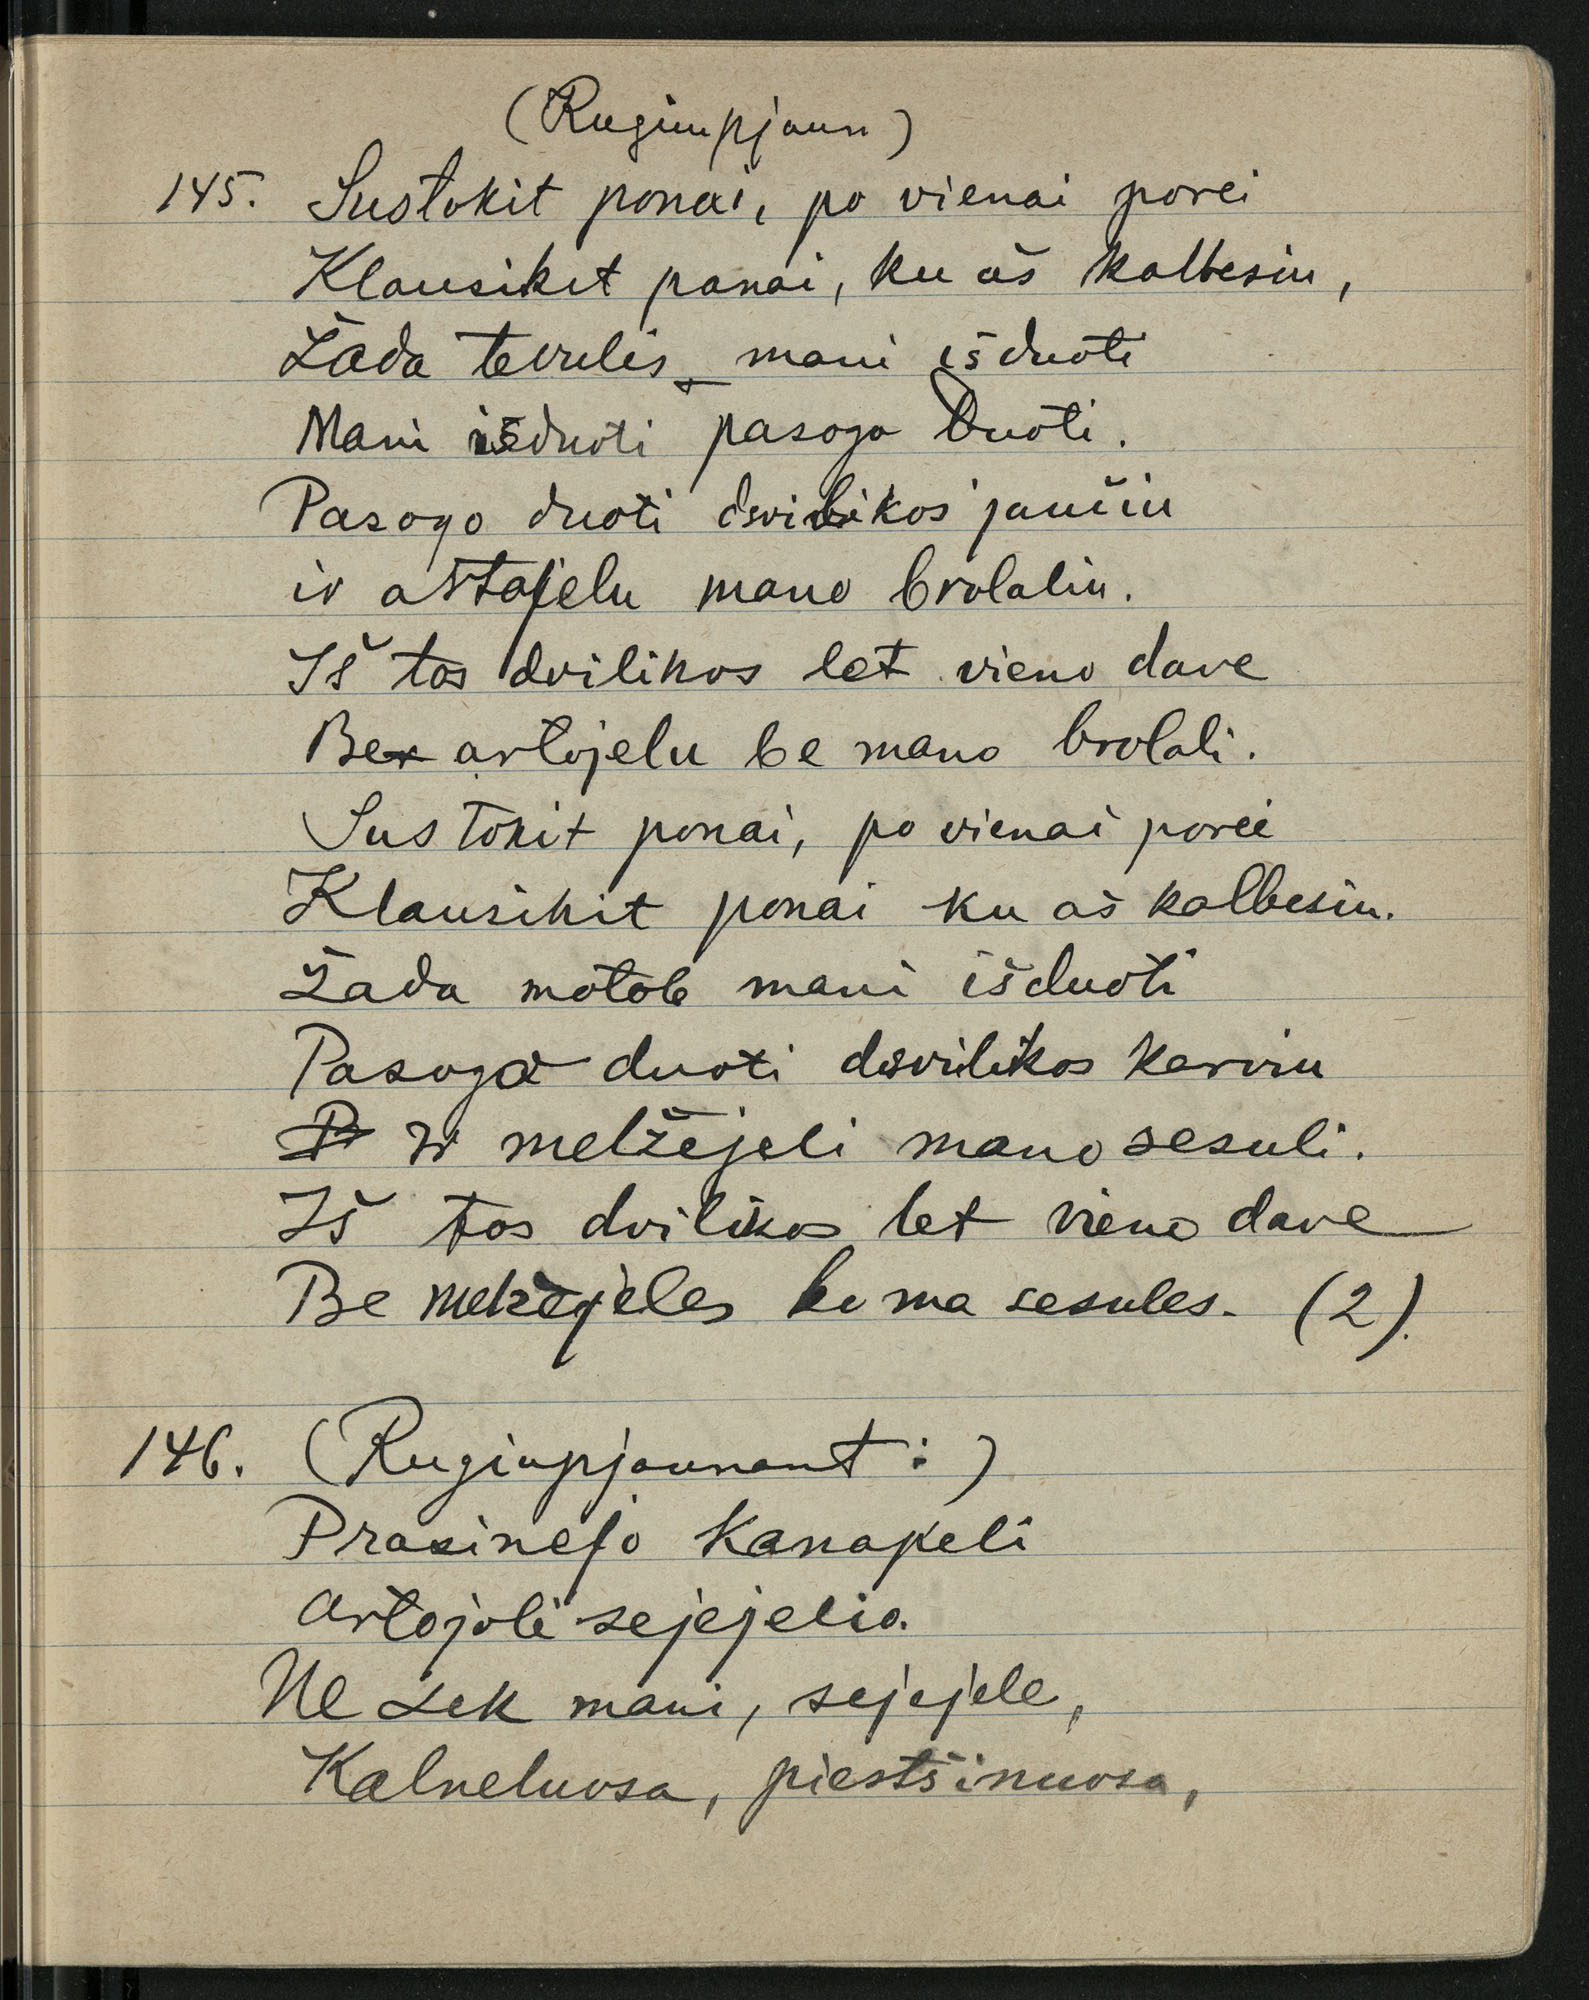 (Rugiupjaun)
145. Sustokit ponai, po vienai porei
Klausikit ponai, ku aš kalbesiu,
Žada tevulis mani išduoti
Mani išduoti pasogo duoti.
Pasogo duoti dvilikos jaučiu
ir artojelu mano brolaliu.
Iš tos dvilikos let vieno dave
Be artojelu be mano brolali.
Sustokit ponai, po vienai porei
Klausikit ponai ku aš kalbesiu.
Žada motole mani išduoti
Pasoga duoti dvilikos karviu
ir melžejeli mano sesuli.
Iš tos dvilikos let vieno dave
Be melžejeles be ma sesules. (2).
146. (Rugiupjaunant:)
Prasinejo kanapeli
artojoli sejejelio.
Ne sek mani, sejejele,
Kalneluosa, piestšinuosa,